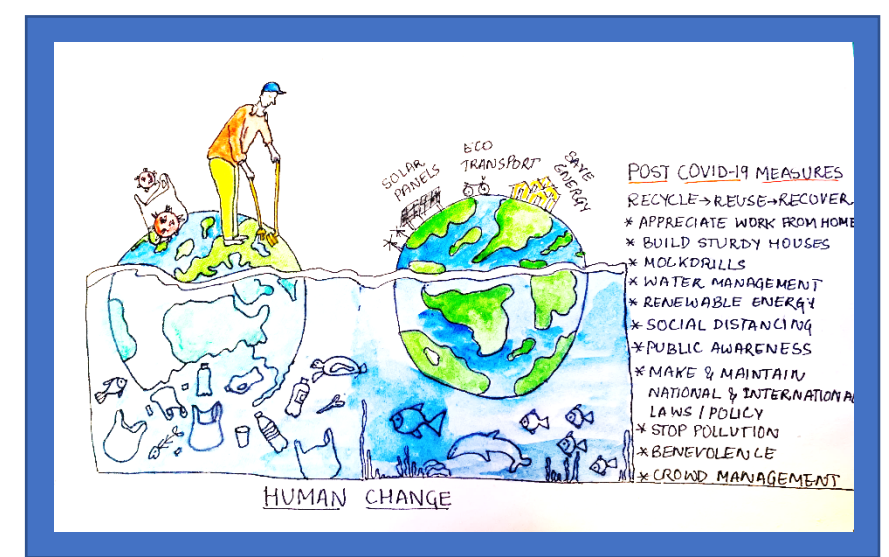 SOLAR
PANELS
ECO
TRANSPORT
SAVE
ENERGY
POST COVID-19 MEASURES
RECYCLE→REUSE→RECOVER
* APPRECIATE WORK FROM HOME
* BUILD STURDY HOUSES
* MOCKDRILLS
* WATER MANAGEMENT
* RENEWABLE ENERGY
* SOCIAL DISTANCING
* PUBLIC AWARENESS
* MAKE & MAINTAIN
NATIONAL & INTERNATIONAL
LAWS / POLICY
* STOP POLLUTION
* BENEVOLENCE
* CROWD MANAGEMENT
HUMAN CHANGE